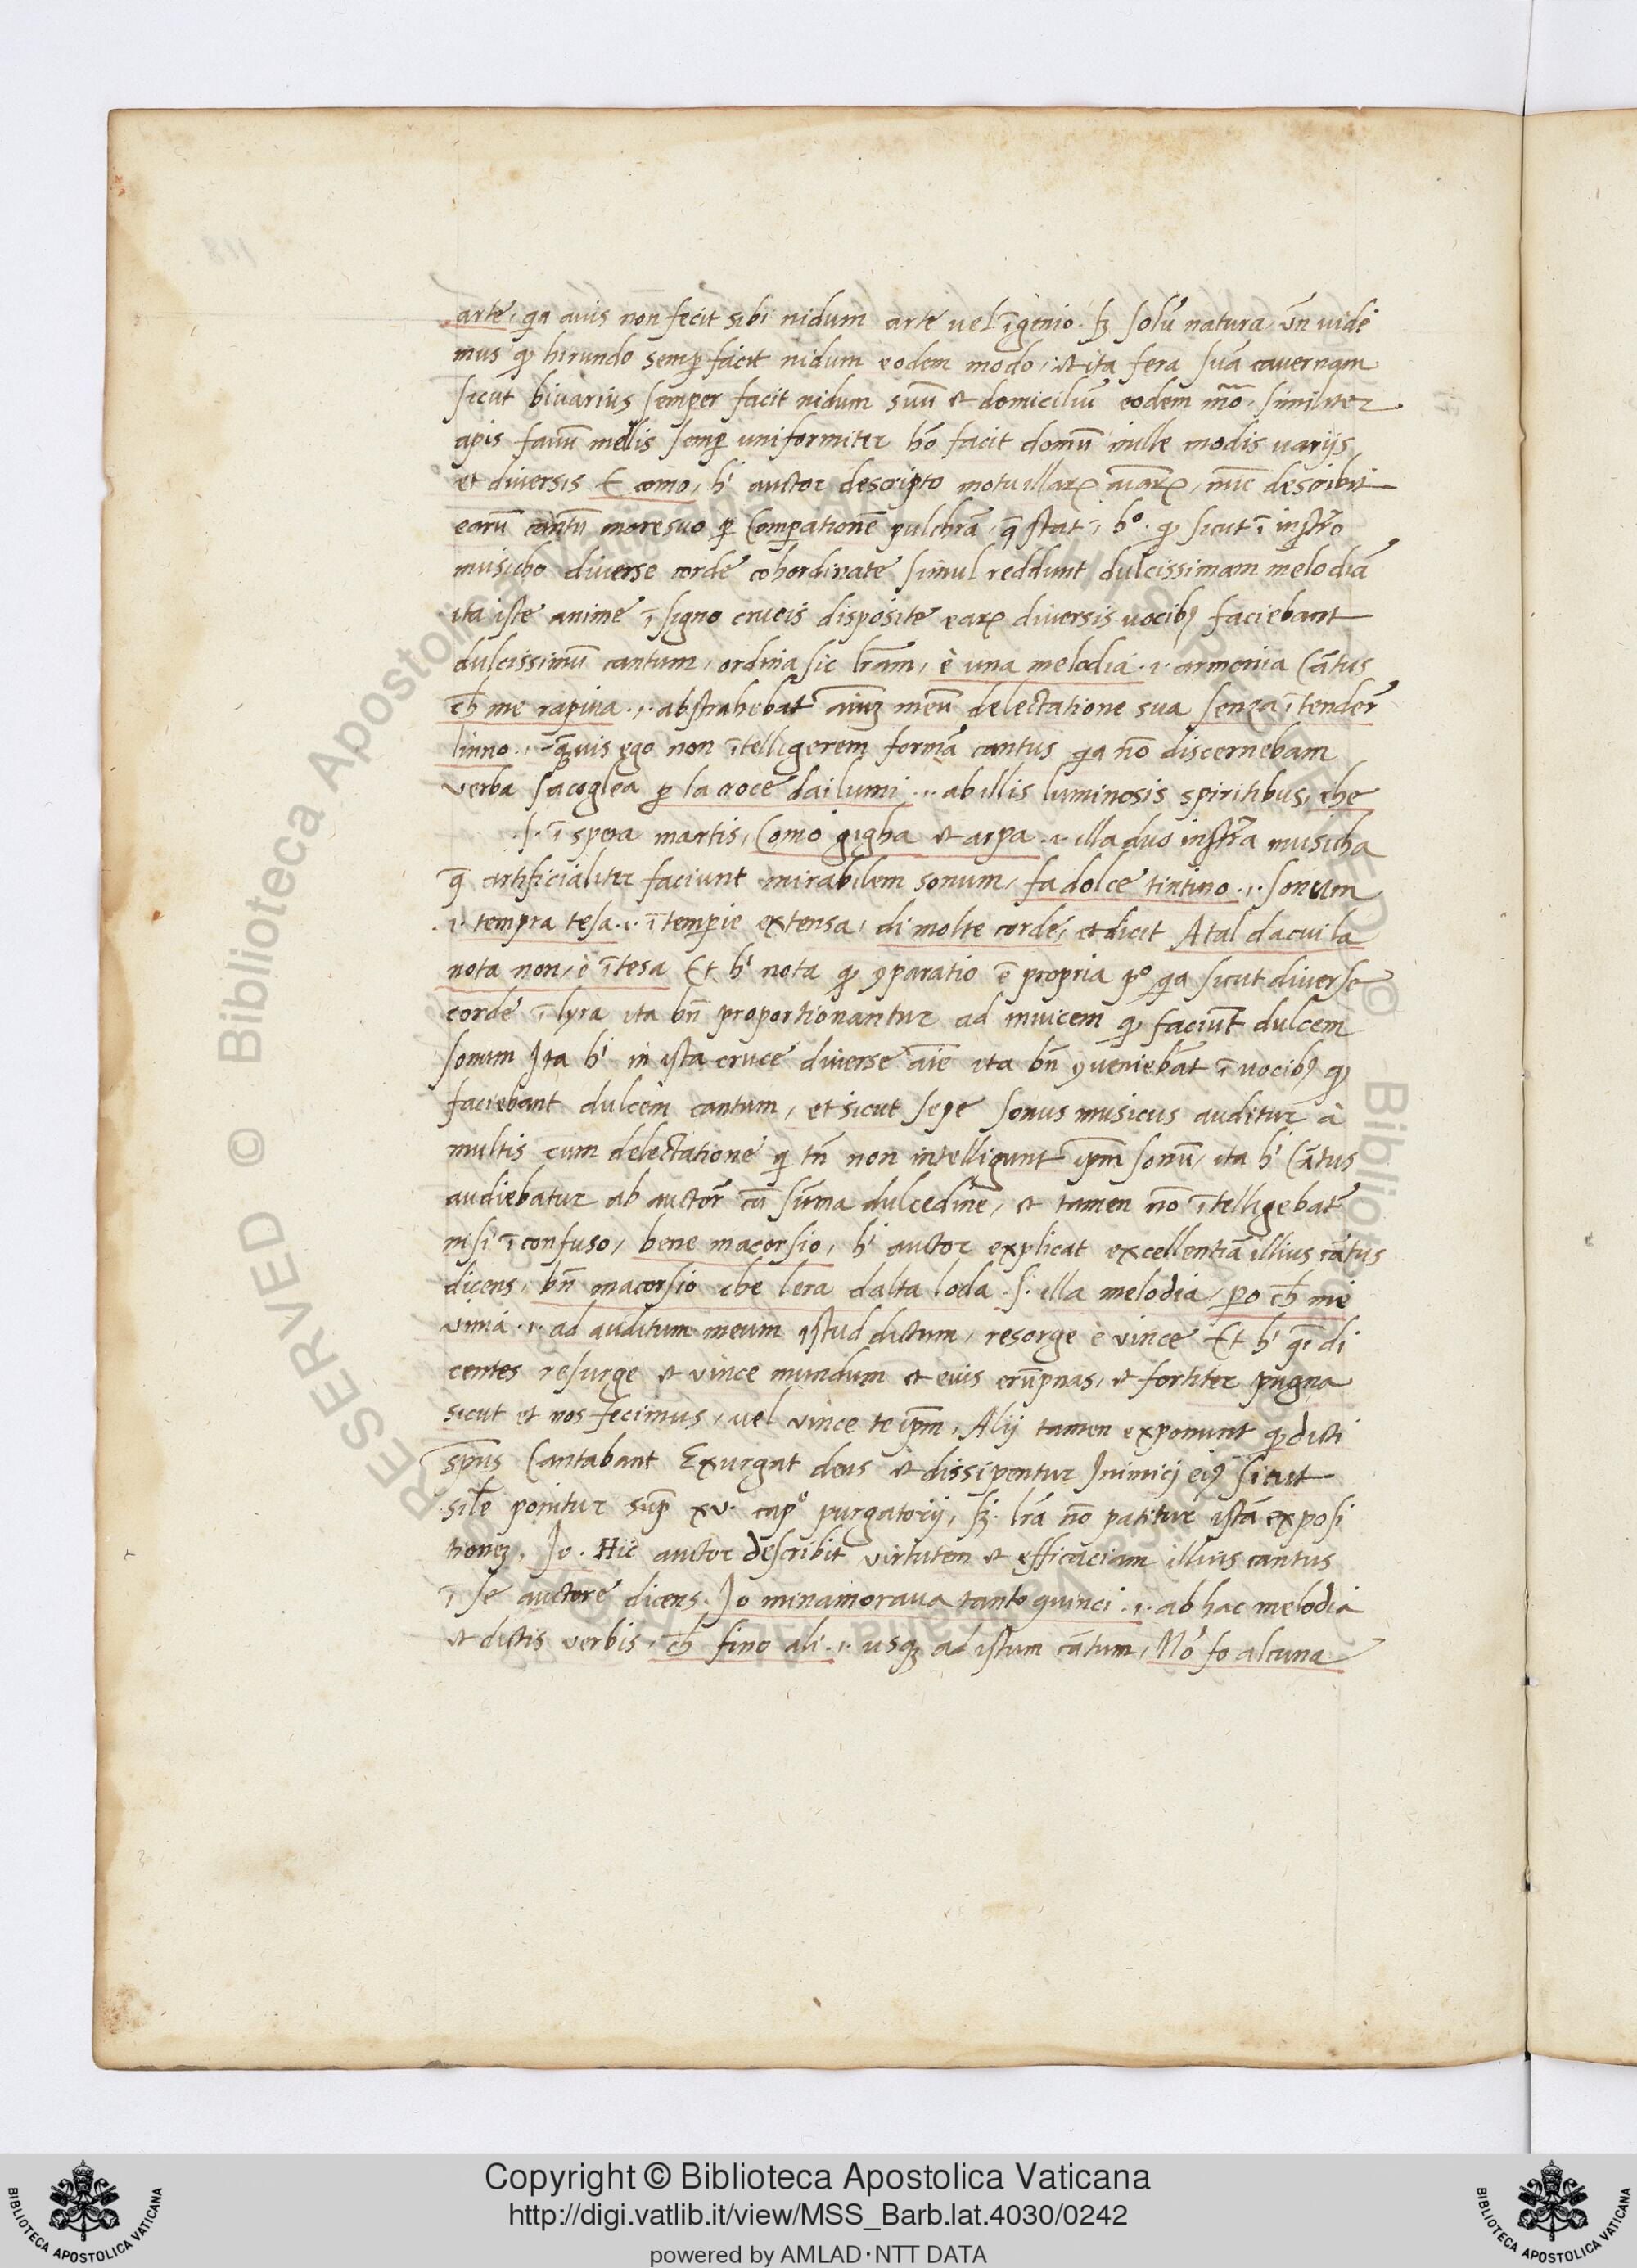 arte, q̄a auis non fecit sibi nidum arte uel īgenio. sꝫ solū natura, vn̄ uide
mus qꝫ hirundo semp̄ facit nidum eodem modo, et ita fera suā cauernam
sicut biuarius semper facit nidum suū et domiciliū eodem mō. similiter
apis fauū mellis semp̄ uniformiter hō facit domū mille modis varijs
et diversis E como, hⁱ auctor descripto motu illarꝝ aiarꝝ, nūc describit
earū cantū more suo ꝑ Comꝑationē pulchrā, q̄ stat ī hº. qꝫ sicut ī instr̄o
musicho diverse corde cohordinate simul reddunt dulcissimam melodiā
ita iste anime ī signo crucis disposite earꝝ diversis uocibꝫ faciebant
dulcissimū cantum, ordina sic lr̄am, è una melodia .i. armonia Cātus
ch̄ me rapiua .i. abstrahebat aīuꝫ meū delectatione sua senza ītender̄
linno .i. q̄uis ego non ītelligerem formā cantus q̄a nō discernebam
verba sacoglea ꝑ la croce dai lumi .i. ab illis luminosis spiritibus, che
.s. ī spera martis, Como gigha et arpa .i. illa duo instr̄a musicha
q̄ artificialiter faciunt mirabilem sonum, fa dolce tintino .i. sonum
.i. tempra tesa .i. ī temperie extensa, di molte corde, et dicit A tal da cui la
nota non, è ītesa Et hⁱ nota qꝫ ꝯparatio ē propria pº q̄a sicut diverse
corde ī lyra ita bn̄ proportionantur ad inuicem qꝫ faciūt dulcem
sonum Ita hⁱ in ista cruce diverse aīe ita bn̄ ꝯueniebāt ī uocibꝫ qꝫ
faciebant dulcem cantum, et sicut sepe sonus musicus auditur à
multis cum delectatione qi tn̄ non intelligunt ip̄m sonū, ita hⁱ Cātus
audiebatur ab auctor̄ cū sūma dulcedine, et tamen nō ītelligebat̄
nisi ī confuso, bene macorsio, hⁱ auctor explicat excellentiā illius cātus
dicens, bn̄ macorsio che lera dalta loda .s. illa melodia, ꝑo ch̄ me
vinia .i. ad auditum meum istud dictum, resorge è vince Et hⁱ q̄i di
centes resurge et vince mundum et eius erūpnas, et fortiter pugna
sicut et nos fecimus, uel vince te ip̄m, Alij tamen exponunt qꝫ dicti
sp̄us Cantabant Exurgat deus et dissipentur Inimici eiꝰ sicut
sil̄e ponitur sup̄ xv. capº purgatorij, sꝫ. lr̄a nō patitur istā exposi
tioneꝫ. Io. Hic auctor describit virtutem et efficaciam illius cantus
ī se auctore dicens. Io minamoraua tanto quinci .i. ab hac melodia
et dictis verbis, ch̄ fino ali .i. usqꝫ ad istum cātum, Nō fo alcuna
Copyright © Biblioteca Apostolica Vaticana
http://digi.vatlib.it/view/MSS_Barb.lat.4030/0242
powered by AMLAD·NTT DATA